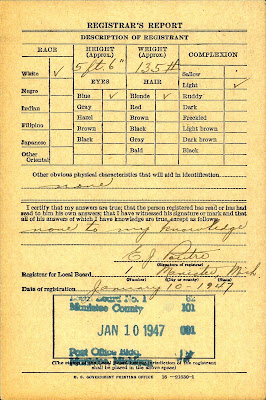 REGISTRAR'S REPORT
DESCRIPTION OF REGISTRANT
RACE HEIGHT (Approx.) WEIGHT (Approx.) COMPLEXION
5 ft. 6" 135#
White ✓ Sallow
EYES HAIR Light ✓
Negro Blue ✓ Blonde ✓ Ruddy
Indian Gray Red Dark
Hazel Brown Freckled
Filipino Brown Black Light brown
Japanese Black Gray Dark brown
Other Oriental Bald Black
Other obvious physical characteristics that will aid in identification
none
I certify that my answers are true; that the person registered has read or has had
read to him his own answers; that I have witnessed his signature or mark and that
all of his answers of which I have knowledge are true, except as follows:
none to my knowledge
(Signature of registrar)
Registrar for Local Board 1 Manistee Mich
(Number) (City or county) (State)
Date of registration January 10 - 1947
Local Board No. 1
Manistee County 101
JAN 10 1947 001
Post Office Bldg.
(The stamp of the Local Board having jurisdiction of the registrant
shall be placed in the above space)
U. S. GOVERNMENT PRINTING OFFICE 16—21630-1